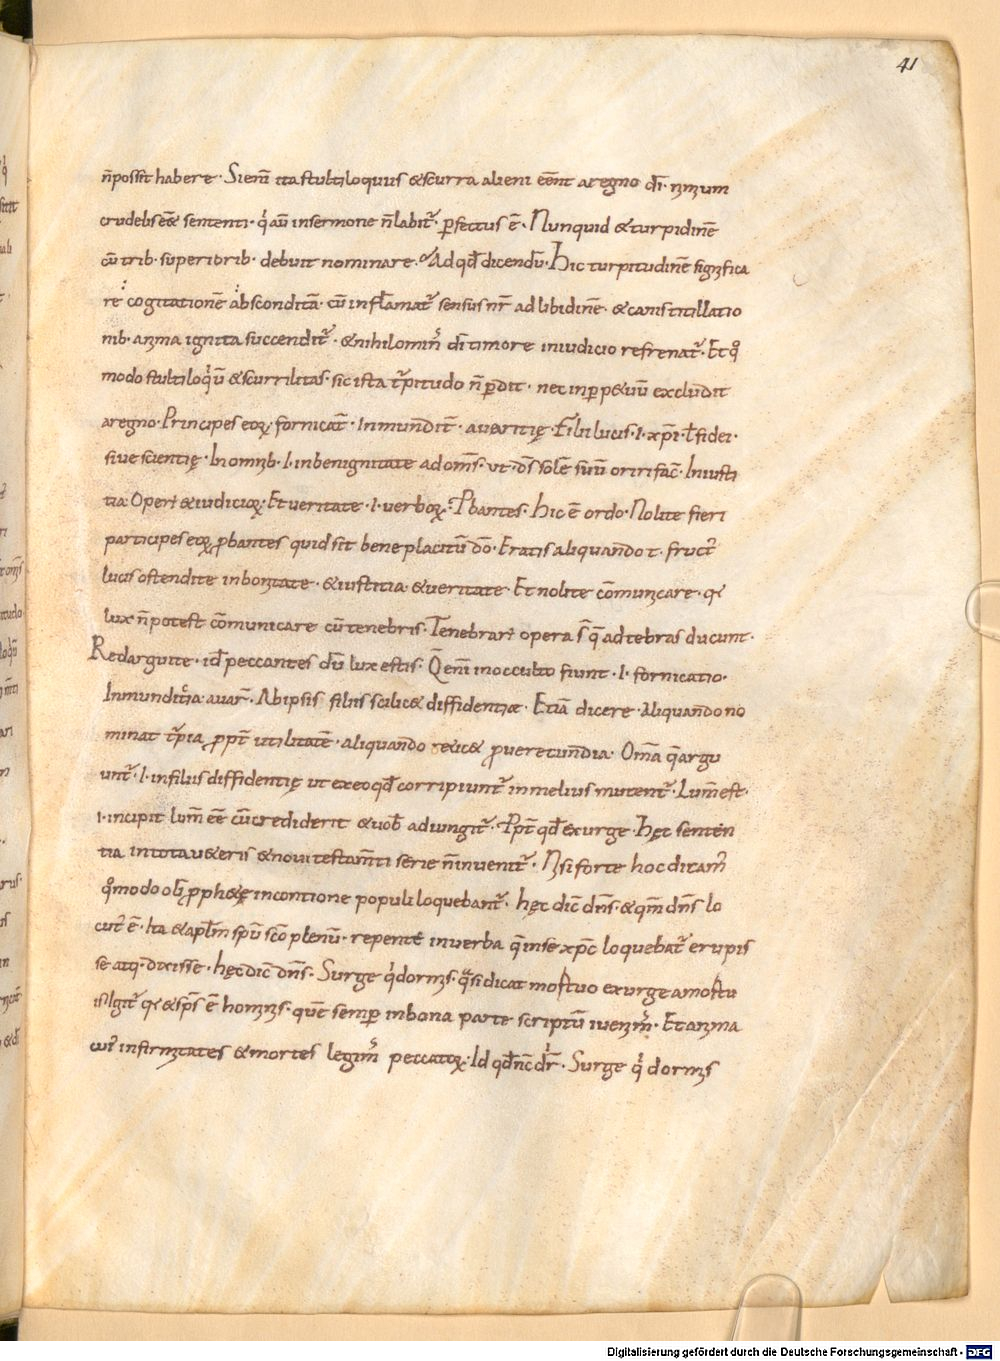 41
n̄possit habere · Si eni͞m ita stultiloquus & scurra alieni eēnt a regno dī · nimium
crudelis eē sententi · q̍ aū in sermone n̄ labit᷑ · ꝑfectus ē · Nunquid & turpidinē
cū trib · superiorib · debuit nominare · Ad qd̄ dicendū · Hic turpitudinē significa
re cogitationē absconditā · cū inflāmat᷑ sensus nr̄ ad libidinē · & carnis titillatio
nib · anima ignita succendit᷑ · & nihilomin᷒ dī timore in iudicio refrenat᷑ · Et qͦ
modo stultiloq̍ū & scurrilitas · sic ista t᷑pitudo n̄ ꝑdit · nec inꝑp&uū excludit
a regno · Principes eoꝝ · fornicat̄ · Inmundit̄ · avaritię · Filii lucis · i · xp̄i · ł fidei ·
sive scientię · In omnib · i · in benignitate ad om̄s · ut · dn̄s solē suū oriri fac̄ · In iusti
tia · Operū & iudicioꝝ · Et veritate · i · verboꝝ · Pbantes · Hic ē ordo · Nolite fieri
participes eoꝝ ꝓbantes quid sit bene placitū dō · Eratis aliquando t · fruct᷑
lucis ostendite in bonitate · & iustitia · & veritate · Et nolite cōmunicare · q̍
lux n̄ potest cōmunicare cū tenebris · Tenebrarū opera s̄ q̄ ad tebras ducunt ·
Redarguite · id̄ peccantes dū lux estis · Q̄ enī in occulto fiunt · i · fornicatio ·
Inmunditia · avar̄ · Ab ipsis filiis scilic& diffidentiæ · Etiā dicere · Aliquando no
minat t᷑pia ꝓpt̄ utilitatē · aliquando reic& ꝓ verecundia · Om̄a q̄ argu
unt᷑ · i · in filiis diffidentię ut ex eo qd̄ corripiunt᷑ in melius mutent᷑ · Lum̄ est ·
i · incipit lum̄ eē cū crediderit & vob̄ adiungit᷑ · Ppt̄ qd̄ exurge · Hęc senten
tia in tota v&eris & novi testam̄ti serie n̄ invenit᷑ · Nisi forte hoc dicam᷒
qͦmodo oƚ ꝓph&ę in contione populi loquebant᷑ · hęc dic̄ dn̄s · & qm̄ dn̄s lo
cut᷒ ē · Ita & apłm spū scō plenū · repente in verba q̄ in se xp̄c loquebat᷑ erupis
se atq · dixisse · hęc dic̄ dn̄s · Surge q̍ dormis · q̄si dicat mortuo exurge a mortu
is · Igit᷑ q̍ & sp̄s ē hominis · quē semꝑ in bona parte scriptū invenim᷒ · Et anima
cui᷒ infirmitates & mortes legim᷒ peccatoꝝ · Id qd̄ nc̄ dr̄ · Surge q̍ dormis
Digitalisierung gefördert durch die Deutsche Forschungsgemeinschaft - DFG